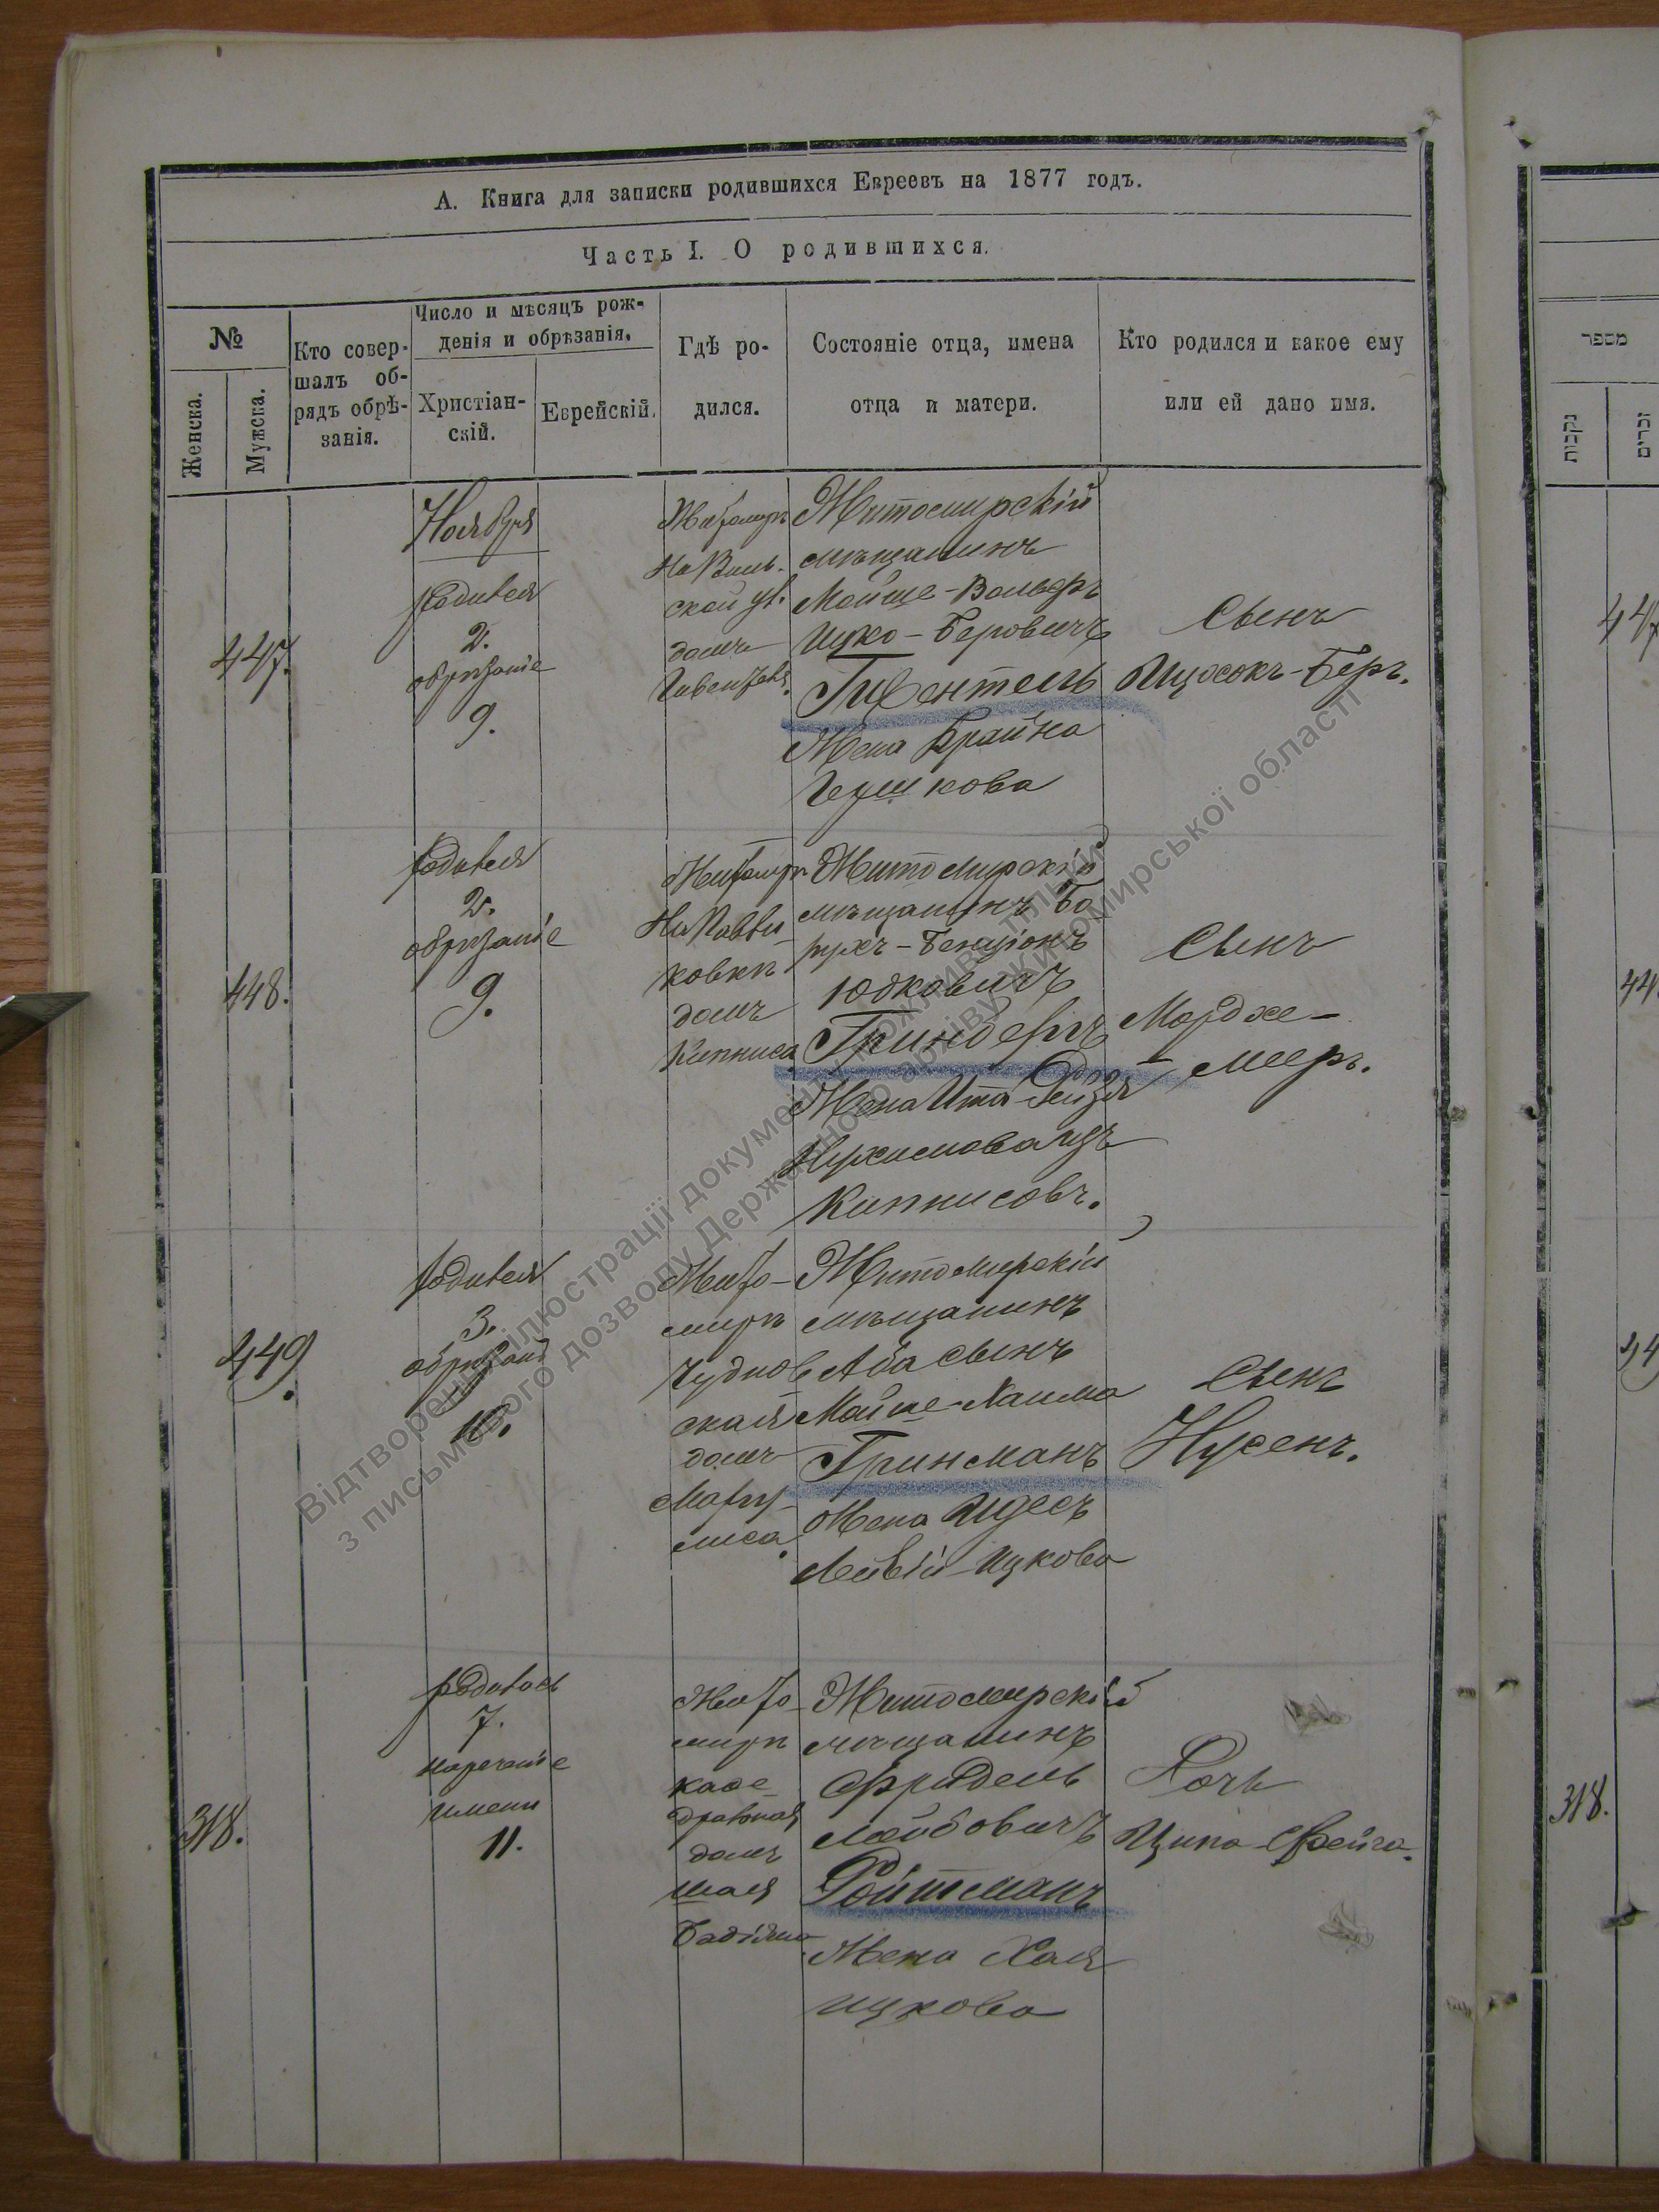 А. Книга для записки родившихся Евреевъ на 1877 годъ.
Часть I. О родившихся.
№
Женска.
Мужска.
Кто совер-
шалъ об-
рядъ обрѣ-
занія.
Число и мѣсяцъ рож-
денія и обрѣзанія.
Христіан-
скій.
Еврейскій.
Гдѣ ро-
дился.
Состояніе отца, имена
отца и матери.
Кто родился и какое ему
или ей дано имя.
447.
Ноября
родився
2.
обрѣзаніе
9.
Житомирѣ
На Виль-
ской ул.
домъ
Житомирскій
мѣщанинъ
Мойше-Вольфъ
Ицко-Беровичъ
Гивентель
Жена Брайна
Гершкова
Сынъ
Ицхокъ-Беръ.
448.
родився
2.
обрѣзаніе
9.
Житомирѣ
ковкѣ
домъ
Кипниса
Житомирскій
мѣщанинъ Бо
рухъ-Бенціонъ
Юдковичъ
Гринбергъ
Жена Ита-Рейзя
Нухимова изъ
Кипнисовъ.
Сынъ
Мордхе-
Мееръ.
449.
родився
3.
10.
Жито-
мирѣ
Чуднов
ская
домъ
Маргу-
лиса.
Житомирскій
мѣщанинъ
Аба сынъ
Мойше-Хаима
Гринманъ
Жена Идесъ
Лейвій-Ицкова
Сынъ
Нусенъ.
318.
родилась
7.
нареченіе
имени
11.
Жито-
мирѣ
кафе-
дральная
домъ
Житомирскій
мѣщанинъ
Фридель
Лейбовичъ
Ройтманъ
Жена Хая
Ицкова
Дочь
Ципа-Фейга.
מספר
נקבות
זכרים
447
44
44
318.
Відтворення ілюстрації документу можливе тільки
з письмового дозволу Державного архіву Житомирської області